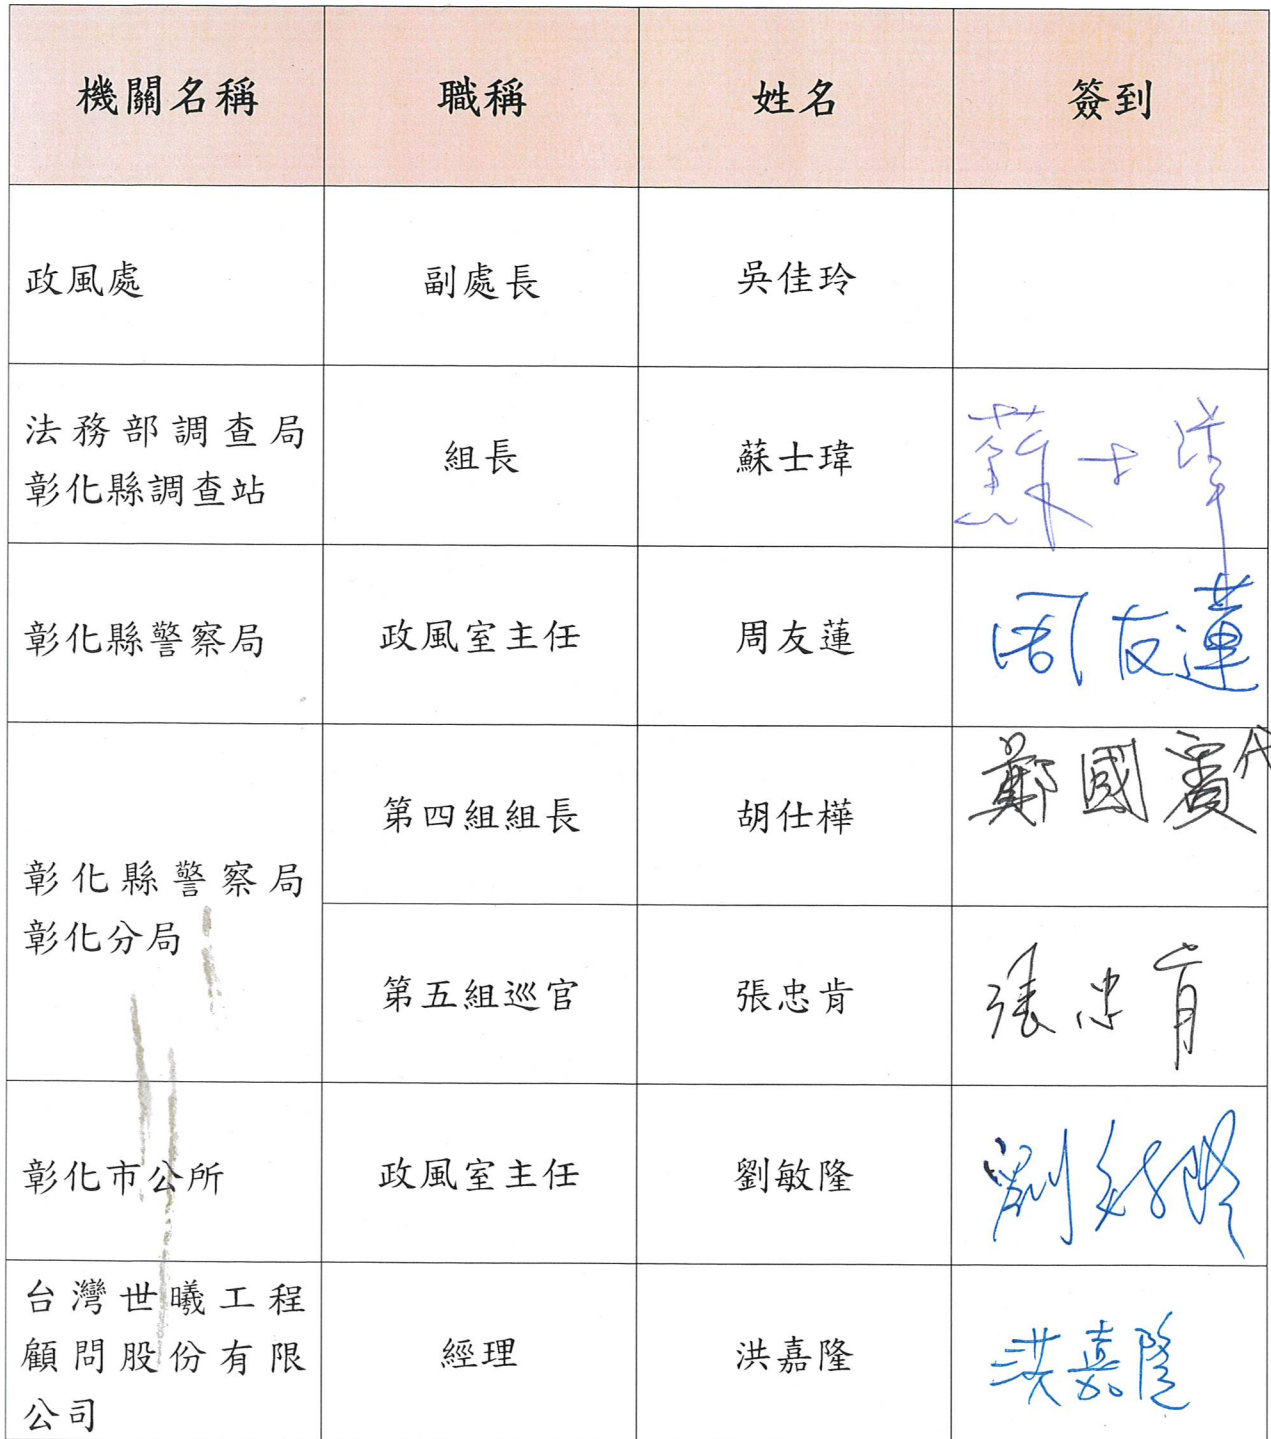 機關名稱 職稱 姓名 簽到
政風處 副處長 吳佳玲
法務部調查局
彰化縣調查站 組長 蘇士瑋 蘇士瑋
彰化縣警察局 政風室主任 周友蓮 周友蓮
彰化縣警察局
彰化分局
第四組組長 胡仕樺 鄭國賓代
第五組巡官 張忠肯 張忠肯
彰化市公所 政風室主任 劉敏隆 劉敏隆
台灣世曦工程
顧問股份有限
公司
經理 洪嘉隆 洪嘉隆